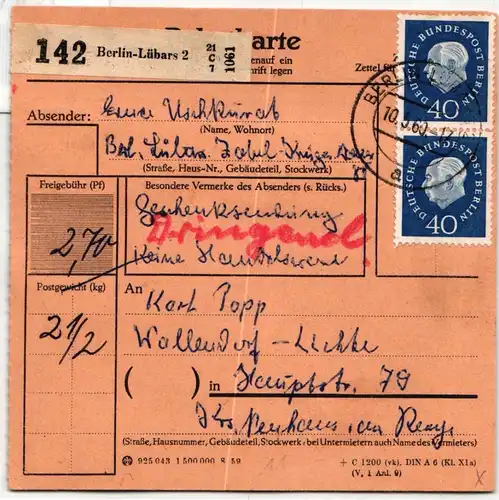 142 Berlin-Lübars 2 21 C 7 1061
karte
enauf ein
hrift legen
Zettel fü
DEUTSCHE BUNDESPOST BERLIN
40
DEUTSCHE BUNDESPOST BERLIN
40
BERLIN
10.
60
a
Absender:
(Name, Wohnort)
Bln. Lübars
(Straße, Haus-Nr., Gebäudeteil, Stockwerk)
Freigebühr (Pf)
Besondere Vermerke des Absenders (s. Rücks.)
Geschenksendung
Dringend.
2,70
Keine Handelsware
Postgewicht (kg)
An
Karl Popp
21/2
Wallendorf-Lichte
( ) in Hauptstr. 79
Krs. Neuhaus am Rennw.
(Straße, Hausnummer, Gebäudeteil, Stockwerk; bei Untermietern auch Name des Vermieters)
925 043 1 500 000 8 59
+ C 1200 (vk), DIN A 6 (Kl. XIa)
(V, 1 Anl. 9)